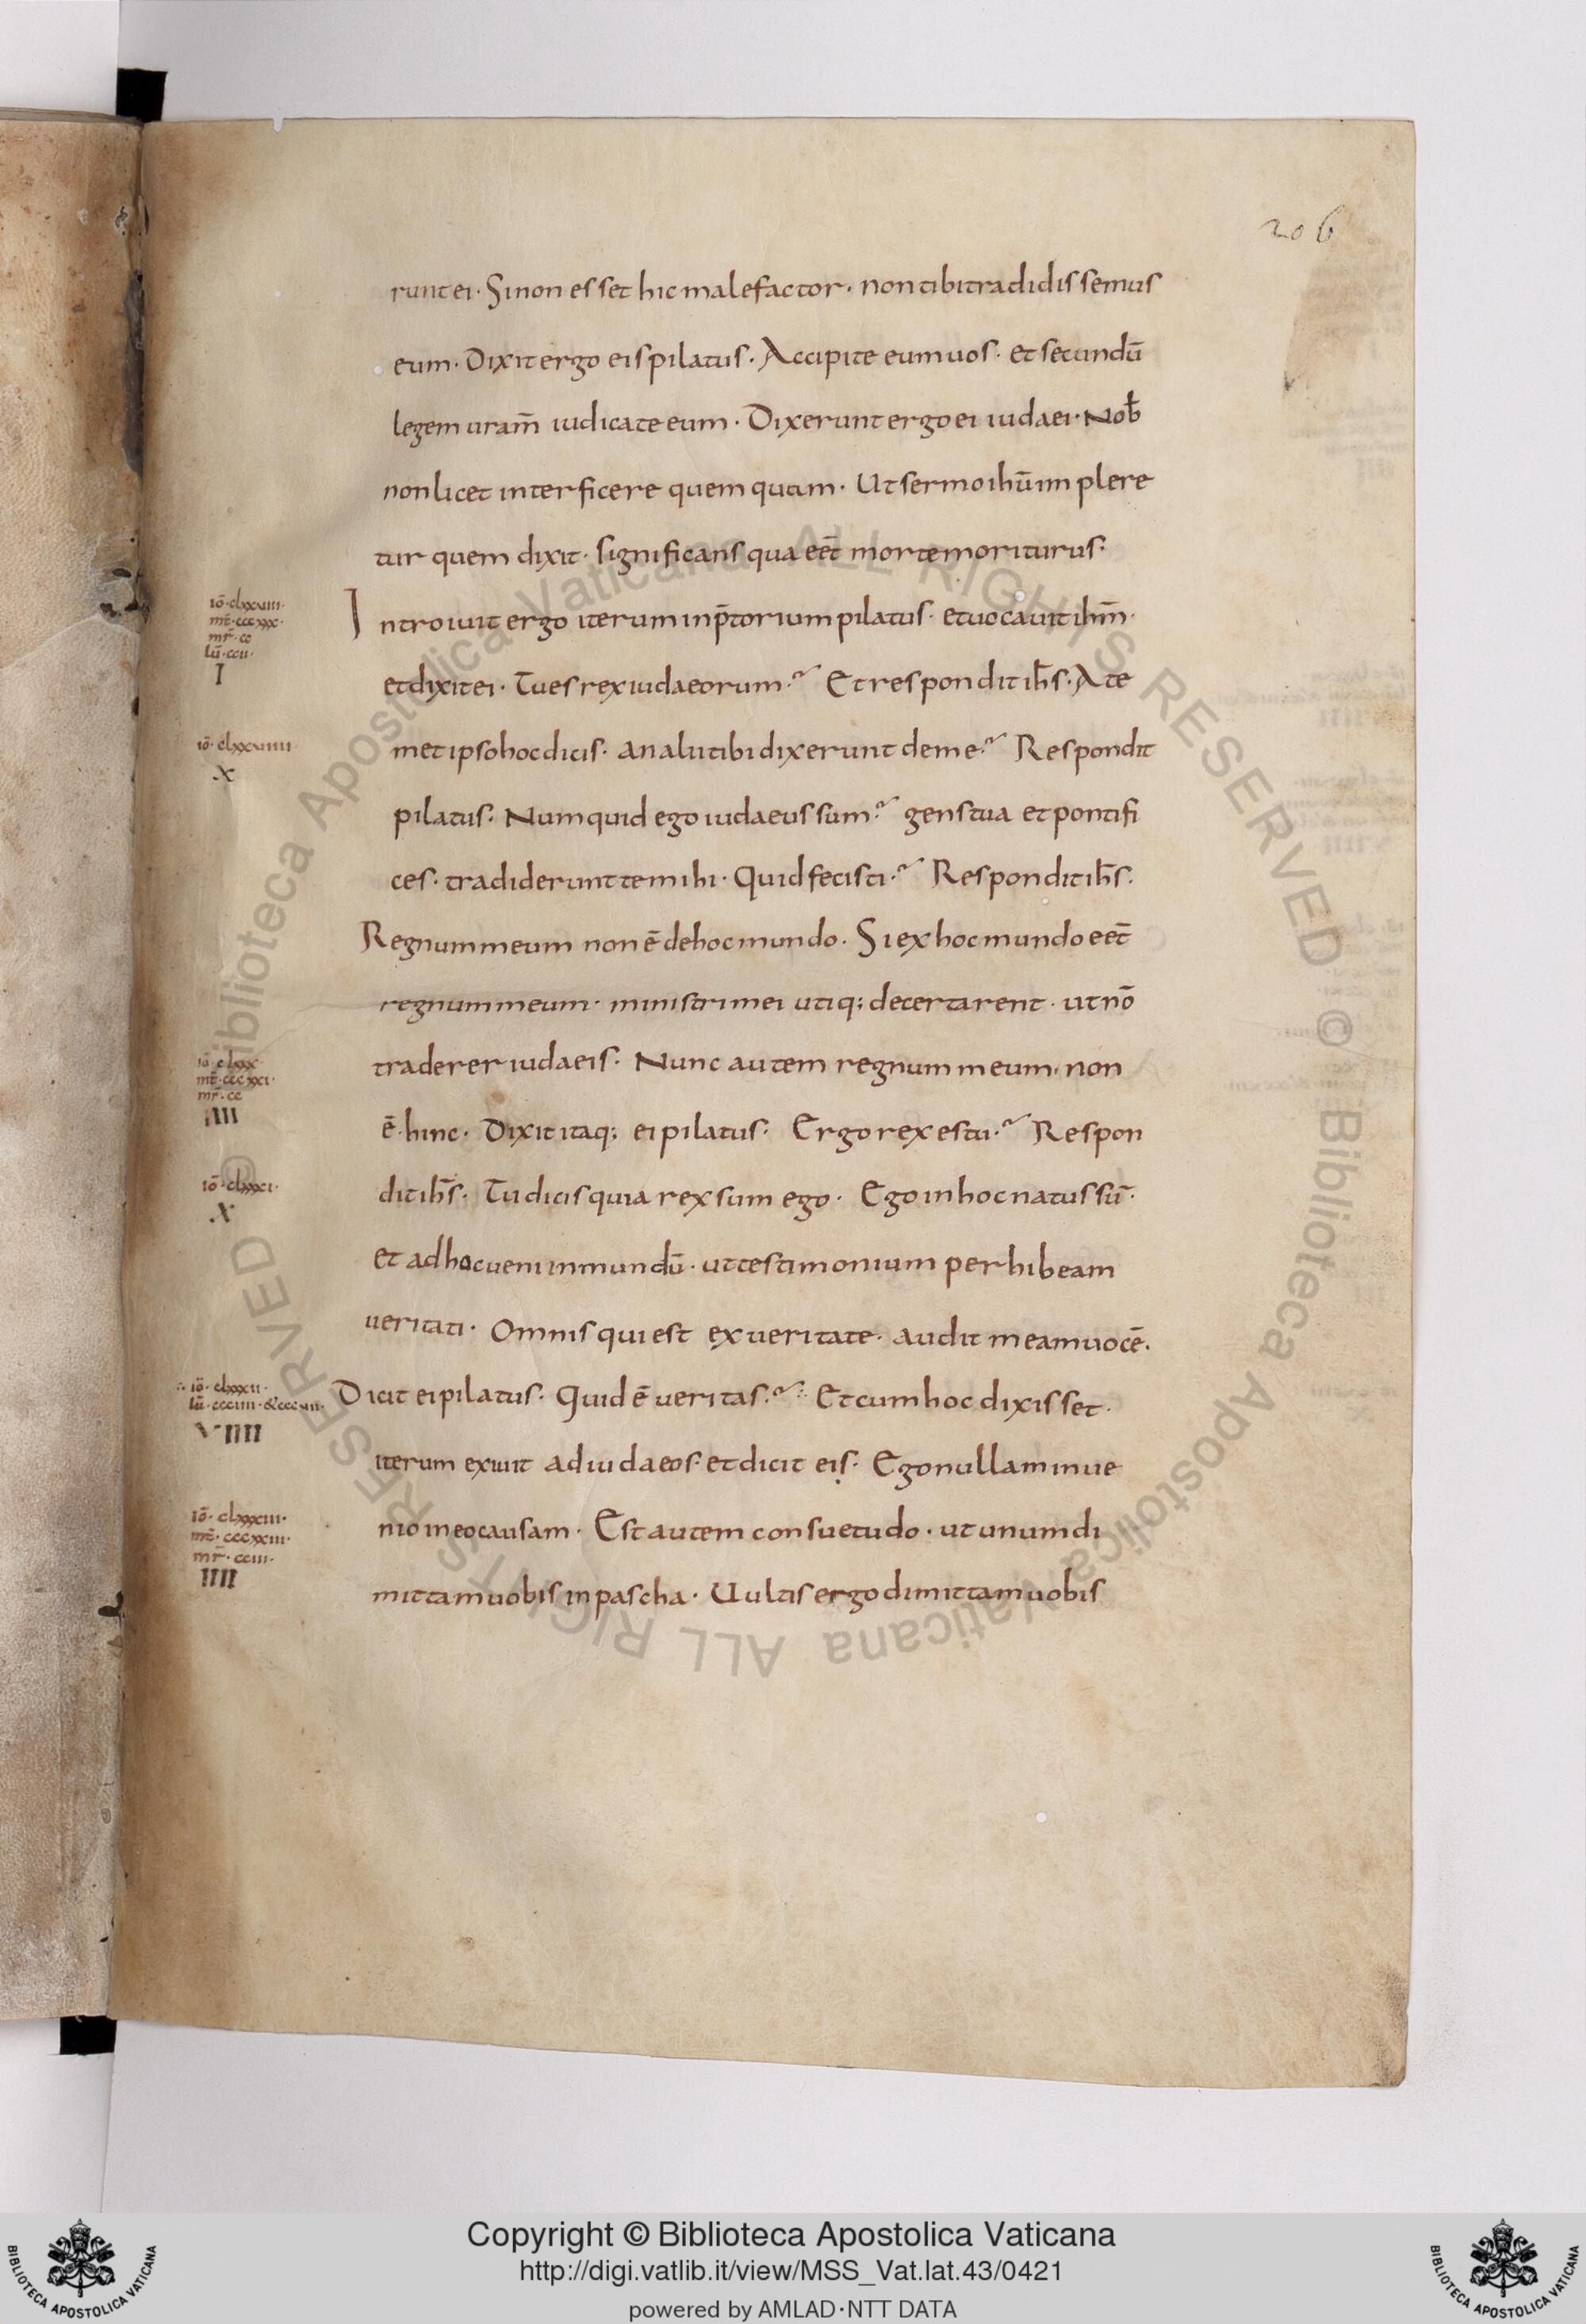 206
runt ei · Si non esset hic malefactor · non tibi tradidissemus
eum · Dixit ergo eis pilatus · Accipite eum uos · et secundū
legem uram̄ iudicate eum · Dixerunt ergo ei iudaei · Nob̄
non licet interficere quemquam · Ut sermo ihū implere
tur quem dixit · significans qua eēt morte moriturus ·
iō · clxxuiii ·
mt̄ · cccxx ·
mr̄ · cc
lū · ccii ·
I
Introiuit ergo iterum in p̄torium pilatus · et uocauit ihm̄ ·
et dixit ei · Tu es rex iudaeorum ·? Et respondit ih̄s · A te
iō · clxxuiiii
X
met ipso hoc dicis · an alii tibi dixerunt de me ·? Respondit
pilatus · Numquid ego iudaeus sum ·? gens tua et pontifi
ces · tradiderunt te mihi · Quid fecisti ·? Respondit ih̄s ·
Regnum meum non ē de hoc mundo · Si ex hoc mundo eēt
regnum meum · ministri mei utiq; decertarent · ut nō
iō · clxxx ·
mt̄ · cccxxi ·
mr̄ · cc
IIII
traderer iudaeis · Nunc autem regnum meum · non
ē · hinc · Dixit itaq; ei pilatus · Ergo rex es tu ·? Respon
iō · clxxxi ·
X
dit ih̄s · Tu dicis quia rex sum ego · Ego in hoc natus sū ·
et ad hoc ueni in mundū · ut testimonium perhibeam
ueritati · Omnis qui est ex ueritate · audit meam uocē ·
iō · clxxxii ·
VIIII
Dicit ei pilatus · Quid ē ueritas ·? Et cum hoc dixisset ·
iterum exiuit ad iudaeos · et dicit eis · Ego nullam inue
iō · clxxxiii ·
mt̄ · cccxxiii ·
mr̄ · cciii ·
IIII
nio in eo causam · Est autem consuetudo · ut unum di
mittam uobis in pascha · Uultis ergo dimittam uobis
© Biblioteca Apostolica Vaticana ALL RIGHTS RESERVED © Biblioteca Apostolica Vaticana ALL RIGHTS RESERVED
Copyright © Biblioteca Apostolica Vaticana
http://digi.vatlib.it/view/MSS_Vat.lat.43/0421
powered by AMLAD·NTT DATA
BIBLIOTECA APOSTOLICA VATICANA
BIBLIOTECA APOSTOLICA VATICANA